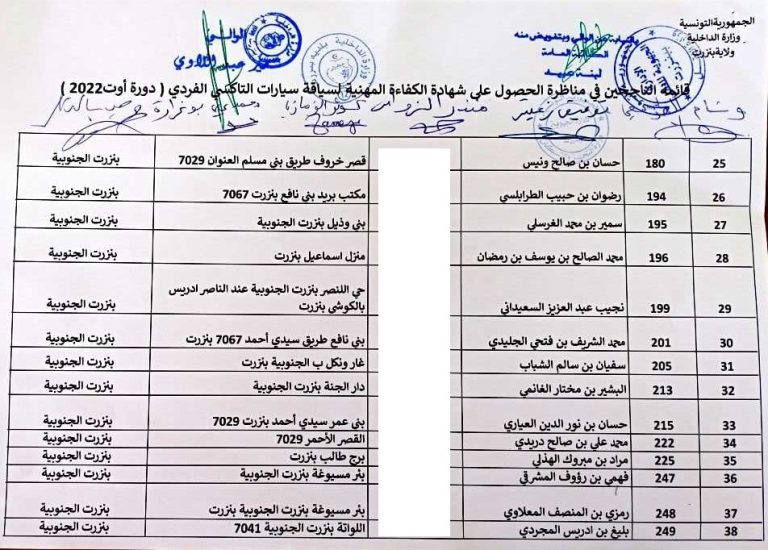 الجمهورية التونسية
وزارة الداخلية
ولاية بنزرت
الوالي
قائمة الناجحين في مناظرة الحصول على شهادة الكفاءة المهنية لسياقة سيارات التاكسي الفردي ( دورة أوت2022 )
25 180 حسان بن صالح ونيس قصر خروف طريق بني مسلم العنوان 7029 بنزرت الجنوبية
26 194 رضوان بن حبيب الطرابلسي مكتب بريد بني نافع بنزرت 7067 بنزرت الجنوبية
27 195 سمير بن محمد الغرسلي بني وذيل بنزرت الجنوبية بنزرت الجنوبية
28 196 محمد الصالح بن يوسف بن رمضان منزل اسماعيل بنزرت بنزرت الجنوبية
29 199 نجيب عبد العزيز السعيداني حي اللنصر بنزرت الجنوبية عند الناصر ادريس
بالكوشي بنزرت بنزرت الجنوبية
30 201 محمد الشريف بن فتحي الجليدي بني نافع طريق سيدي أحمد 7067 بنزرت بنزرت الجنوبية
31 205 سفيان بن سالم الشباب غار ونكل ب الجنوبية بنزرت بنزرت الجنوبية
32 213 البشير بن مختار الغانمي دار الجنة بنزرت الجنوبية بنزرت الجنوبية
33 215 حسان بن نور الدين العياري بني عمر سيدي أحمد بنزرت 7029 بنزرت الجنوبية
34 222 محمد علي بن صالح دريدي القصر الأحمر 7029 بنزرت الجنوبية
35 225 مراد بن مبروك الهذلي برج طالب بنزرت بنزرت الجنوبية
36 247 فهمي بن رؤوف المشرقي بئر مسيوغة بنزرت الجنوبية بنزرت الجنوبية
37 248 رمزي بن المنصف المعلاوي بئر مسيوغة بنزرت الجنوبية بنزرت بنزرت الجنوبية
38 249 بليغ بن ادريس المجردي اللواتة بنزرت الجنوبية 7041 بنزرت الجنوبية